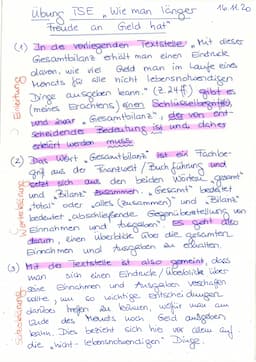 Übung TSE „Wie man länger 16.11.20
Freude an Geld hat"
(1) In der vorliegenden Textstelle „Mit dieser
Gesamtbilanz erhält man einen Eindruck
davon, wie viel Geld man im Laufe eines
Monats für alle nicht lebensnotwendigen
Dinge ausgeben kann." (Z.24ff) gibt es
(meines Erachtens) einen Schlüsselbegriff,
und zwar „Gesamtbilanz", der von ent-
scheidende Bedeutung ist und daher
erklärt werden muss.
Einleitung
(2) Das Wort „Gesamtbilanz" ist ein Fachbe-
griff aus der Finanzwelt / Buchführung und
setzt sich aus den beiden Wörtern „gesamt"
und „Bilanz" zusammen. „Gesamt" bedeutet
„total" oder „alles (zusammen)" und „Bilanz"
bedeutet „abschließende Gegenüberstellung von
Einnahmen und Ausgaben". Es geht also
darum, einen Überblick über die gesamten
Einnahmen und Ausgaben zu erhalten.
Worterklärung
(3) Mit der Textstelle ist also gemeint, dass
man sich einen Eindruck / Überblick über
seine Einnahmen und Ausgaben verschaffen
sollte, um so wichtige Entscheidungen
darüber treffen zu können, wofür man am
Ende des Monats noch Geld ausgeben
kann. Dies bezieht sich hier vor allem auf
die „nicht-lebensnotwendigen" Dinge.